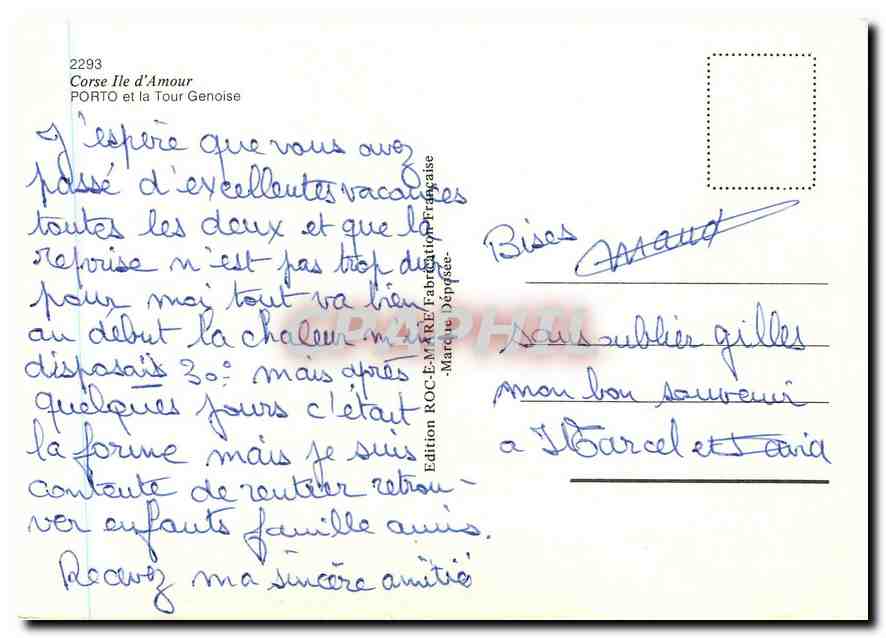 2293
Corse Ile d'Amour
PORTO et la Tour Genoise
J'espère que vous avez
passé d'excellentes vacances
toutes les deux et que la
reprise n'est pas trop dur,
pour moi tout va bien
au début la chaleur m'in
disposais 30° mais après
quelques jours c'était
la forme mais je suis
contente de rentrer retrou-
ver enfants famille amis.
Recevez ma sincère amitié
Edition ROC-E-MARE/Fabrication Française
-Marque Déposée-
Bises Maud
sans oublier gilles
mon bon souvenir
a Marcel et David
CPAPHIL